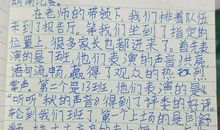 在老师的带领下,我们排着队伍
来到了报告厅。等我们坐到了指定的
位置上,很多家长也都进来了。首先表
演的是7班,他们表演的声音洪亮
语句流畅,赢得了观众的热烈
掌声。第二个是13班,他们表演的是《
听听,秋的声音》得到了评委的好评
轮到我们班了,第一个上场的是闫